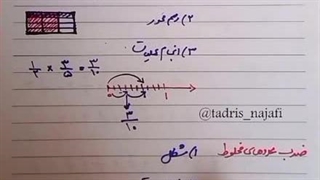 ۲) رسم محور
۳) انجام عملیات
۱/۲ × ۳/۵ = ۳/۱۰
۰ ۱
۳/۱۰
@tadris_najafi
ضرب عددهای مخلوط ۱) شکل